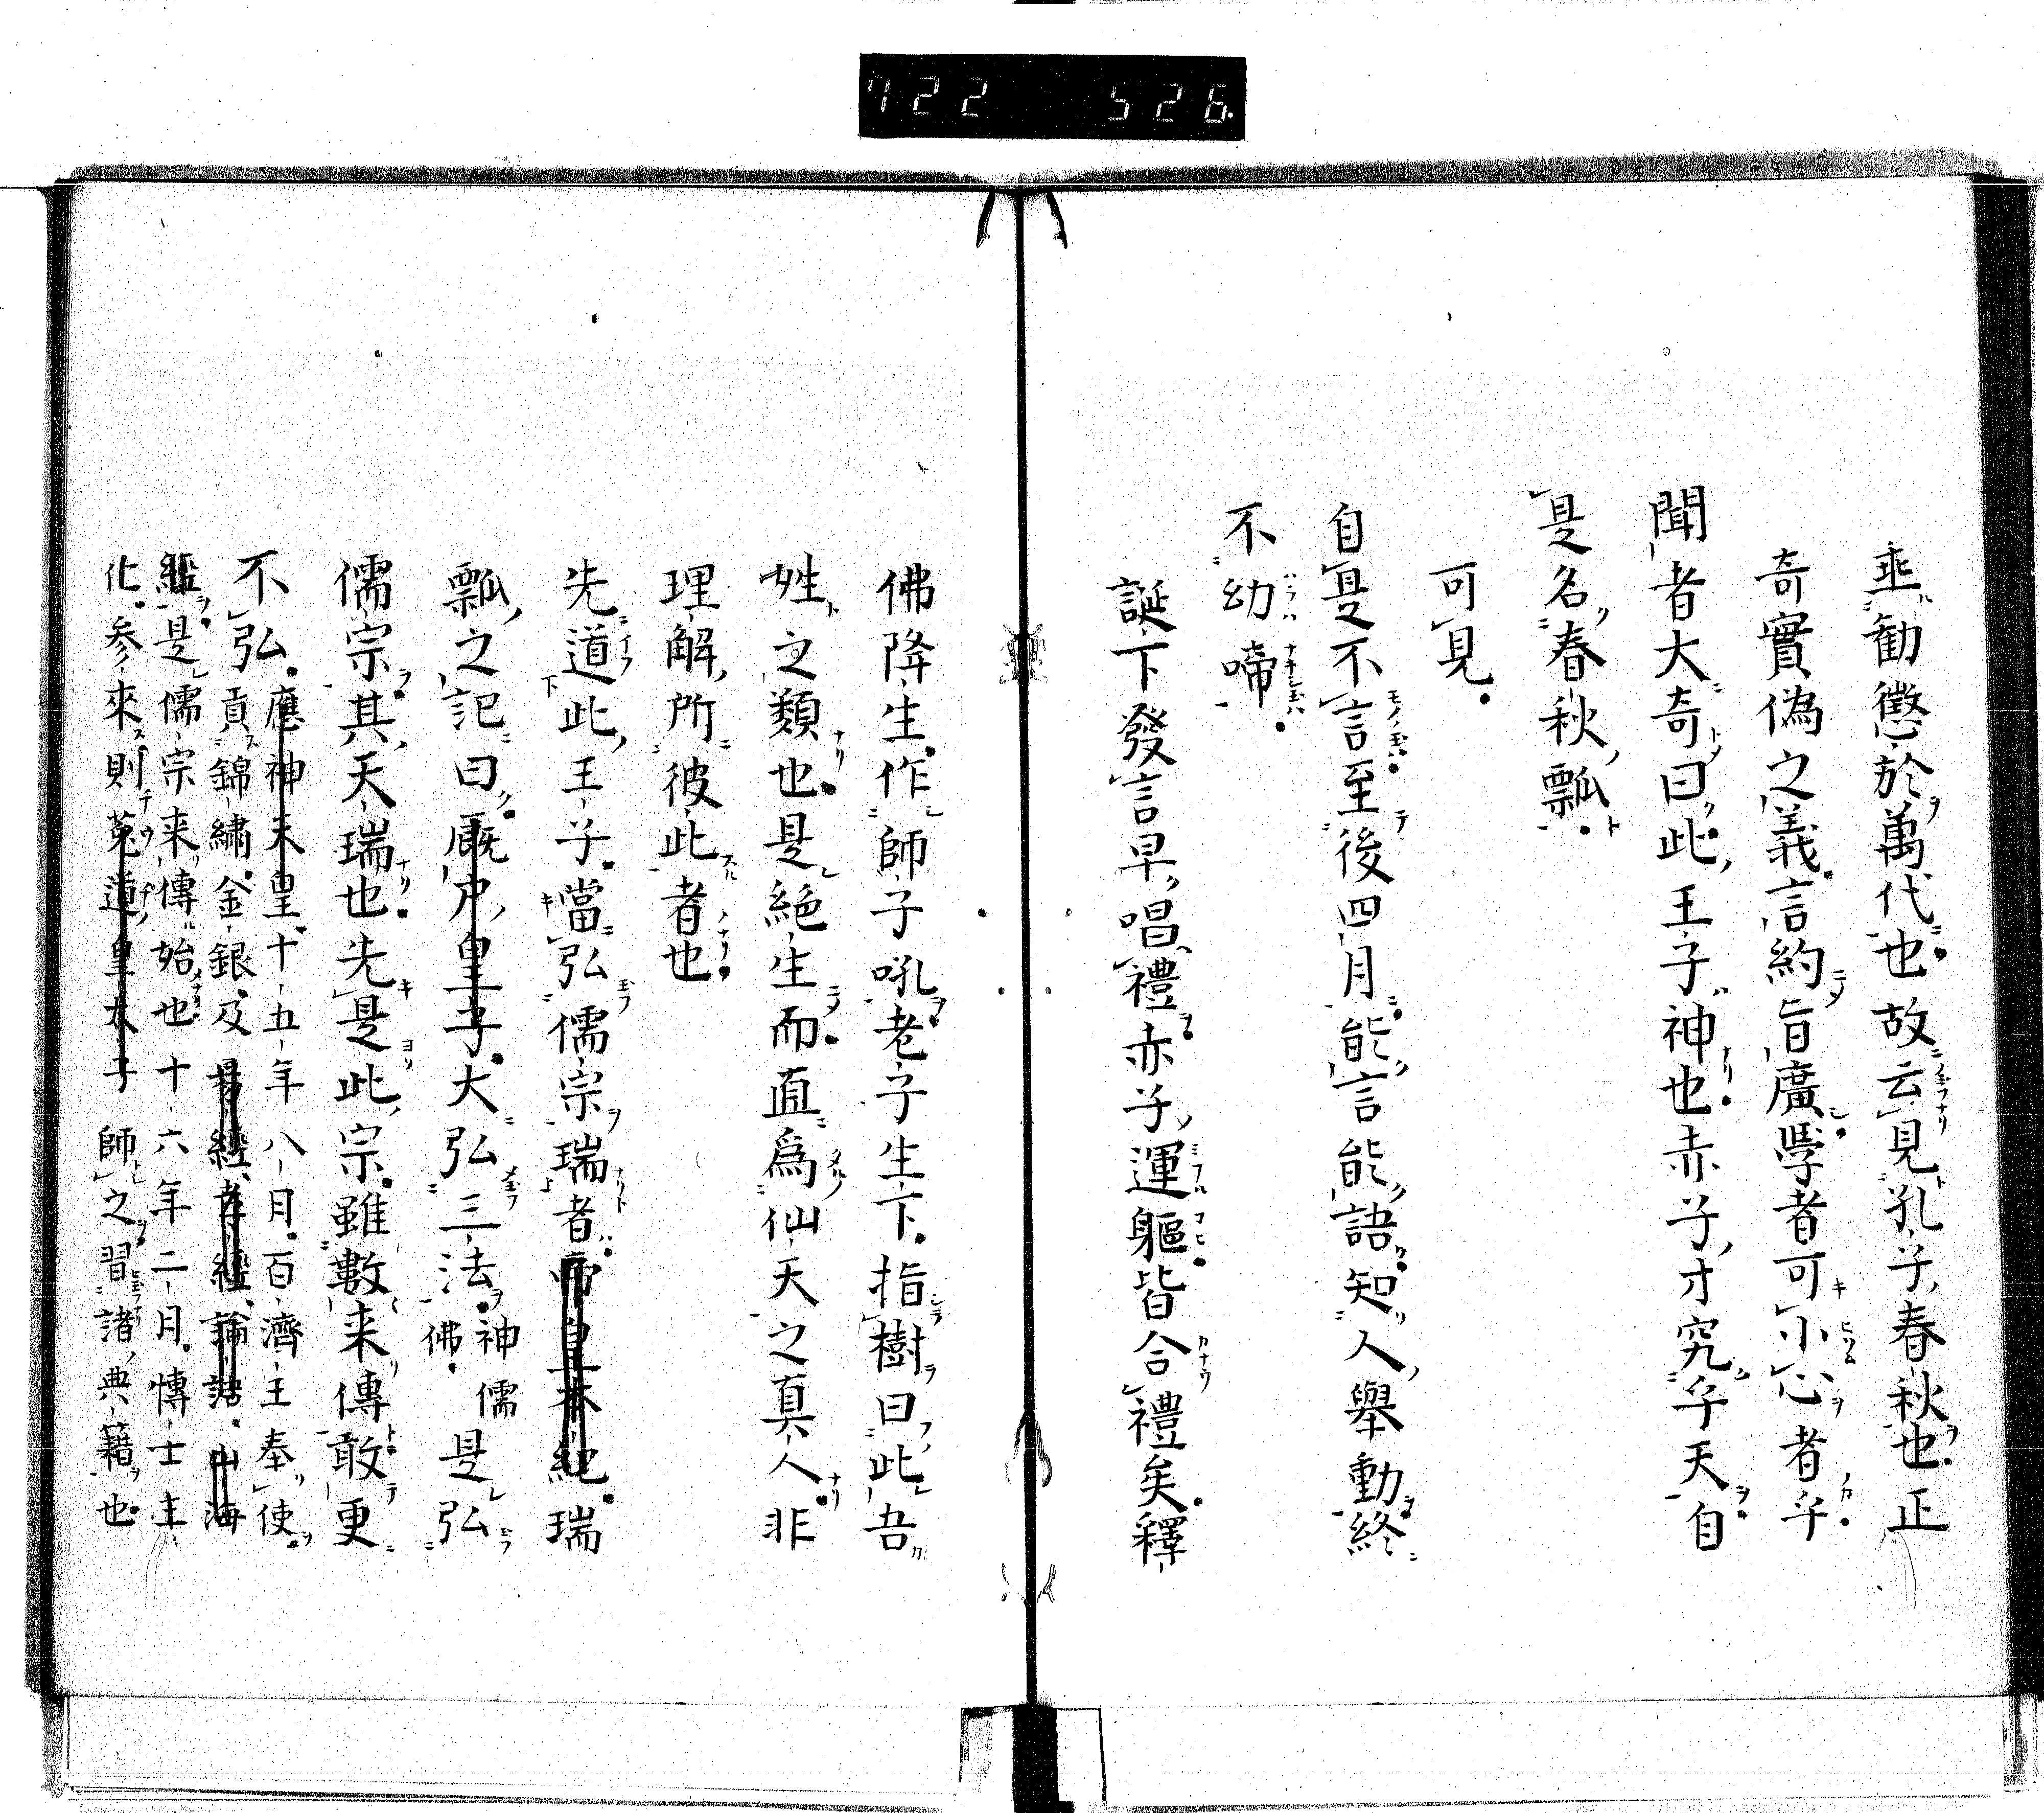 722 526.
垂勧懲於萬代也故云見孔子春秋也正
奇實偽之義言約旨廣學者可小心者乎
聞者大奇曰此王子神也赤子才究乎天自
是名春秋瓢
可見
自是不言至後四月能言能語知人舉動終
不幼啼
誕下發言早唱禮赤子運軀皆合禮矣釋
佛降生作師子吼老子生下指樹曰此吾
姓之類也是絶生而直爲仙天之真人非
理解所彼此者也
先道此王子當弘儒宗瑞者帝皇本紀瑞
瓢之記曰厩戸皇子大弘三法神儒佛是弘
儒宗其天瑞也先是此宗雖數来傳敢更
不弘應神天皇十五年八月百濟王奉使
貢錦繡金銀及易經孝經論語山海
經是儒宗来傳始也十六年二月博士王
化参來則菟道皇太子師之習諸典籍也